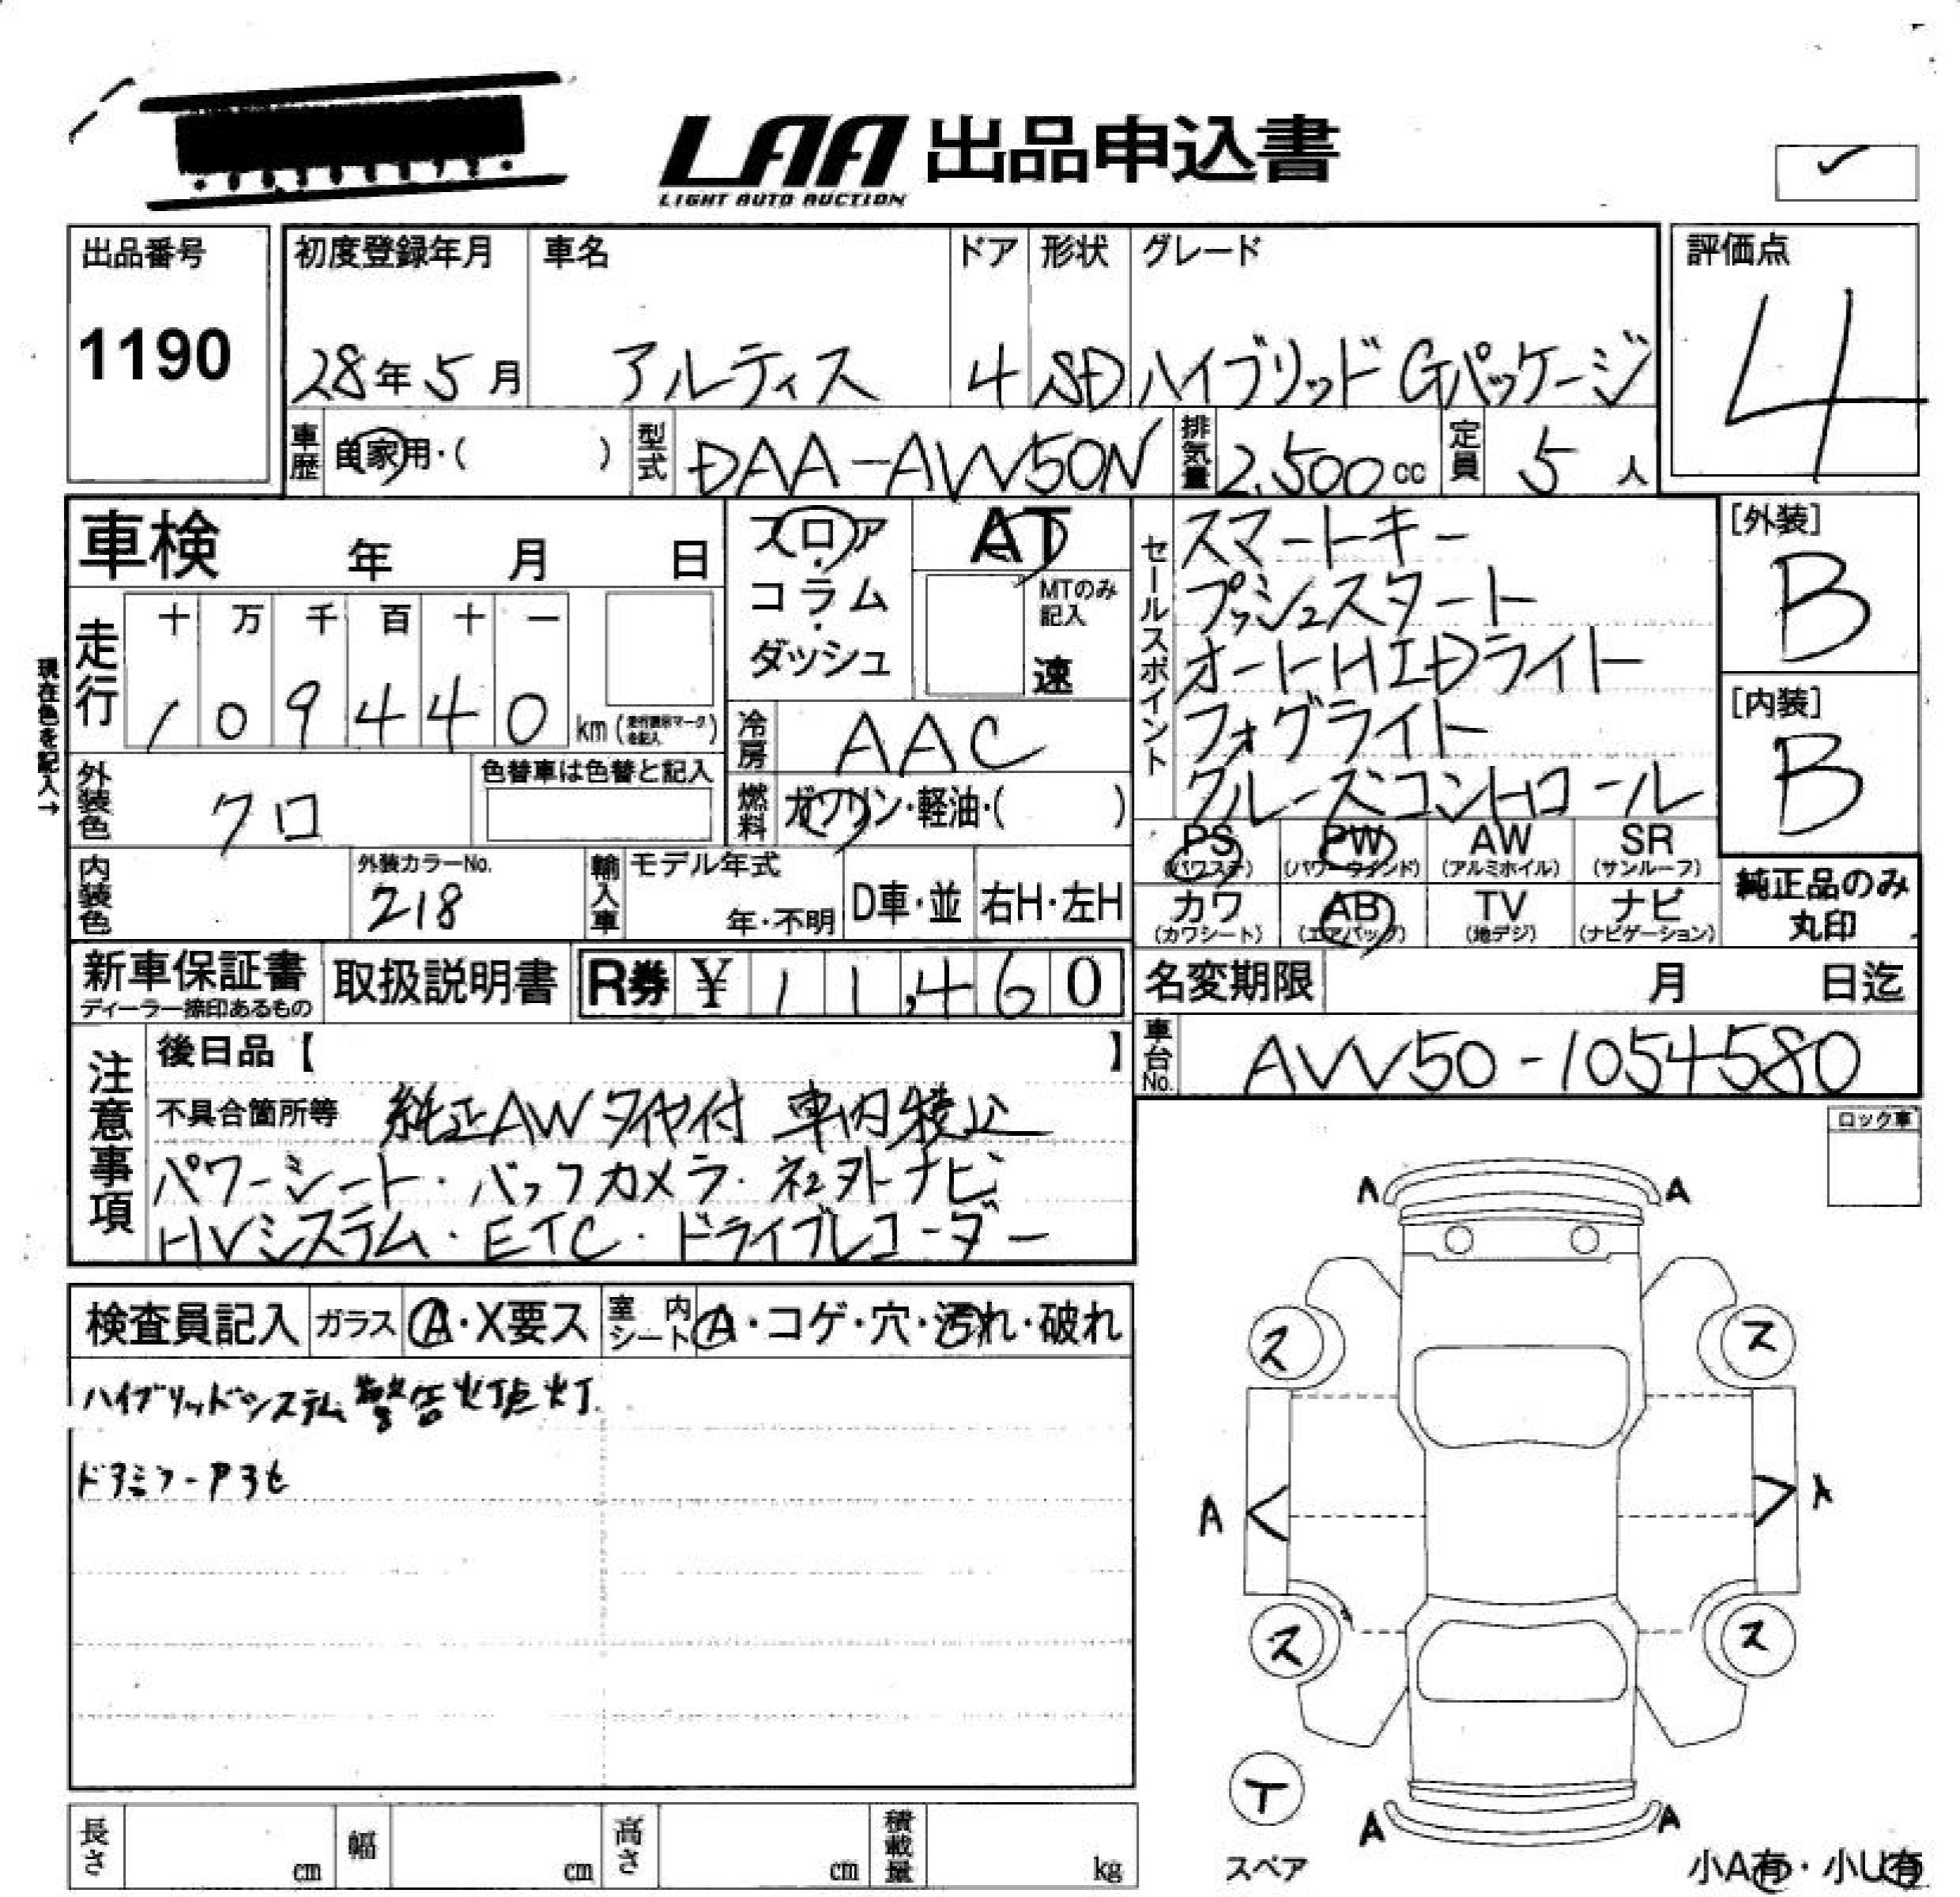 LAA 出品申込書
LIGHT AUTO AUCTION
出品番号
1190
初度登録年月 車名 ドア 形状 グレード
28年5月 アルティス 4 SD ハイブリッド Gパッケージ
評価点
4
車歴 自家用・( ) 型式 DAA-AVV50N 排気量 2,500cc 定員 5人
車検 年 月 日
フロア・コラム・ダッシュ
AT
MTのみ記入
速
セールスポイント
スマートキー
プッシュスタート
オートHIDライト
フォグライト
クルーズコントロール
[外装]
B
[内装]
B
現在色を記入→
走行 十 万 千 百 十 一
1 0 9 4 4 0 km (走行表示マークを記入)
冷房 AAC
外装色 クロ 色替車は色替と記入
燃料 ガソリン・軽油・( )
PS (パワステ) PW (パワーウインド) AW (アルミホイル) SR (サンルーフ)
カワ (カワシート) AB (エアバッグ) TV (地デジ) ナビ (ナビゲーション)
純正品のみ丸印
内装色 外装カラーNo. 218 輸入車 モデル年式 年・不明 D車・並 右H・左H
新車保証書 ディーラー捺印あるもの 取扱説明書 R券 ¥11,460
名変期限 月 日迄
車台No. AVV50-1054580
注意事項
後日品【 】
不具合箇所等 純正AWタイヤ付 車内
パワーシート・バックカメラ・社外ナビ
HVシステム・ETC・ドライブレコーダー
ロック車
検査員記入 ガラス A・X要ス 室内シート A・コゲ・穴・汚れ・破れ
ハイブリッドシステム警告灯点灯
ドアミラーアヲセ
A A
ス ス
A A
ス ス
T
スペア
A A
小A有・小U有
長さ cm 幅 cm 高さ cm 積載量 kg